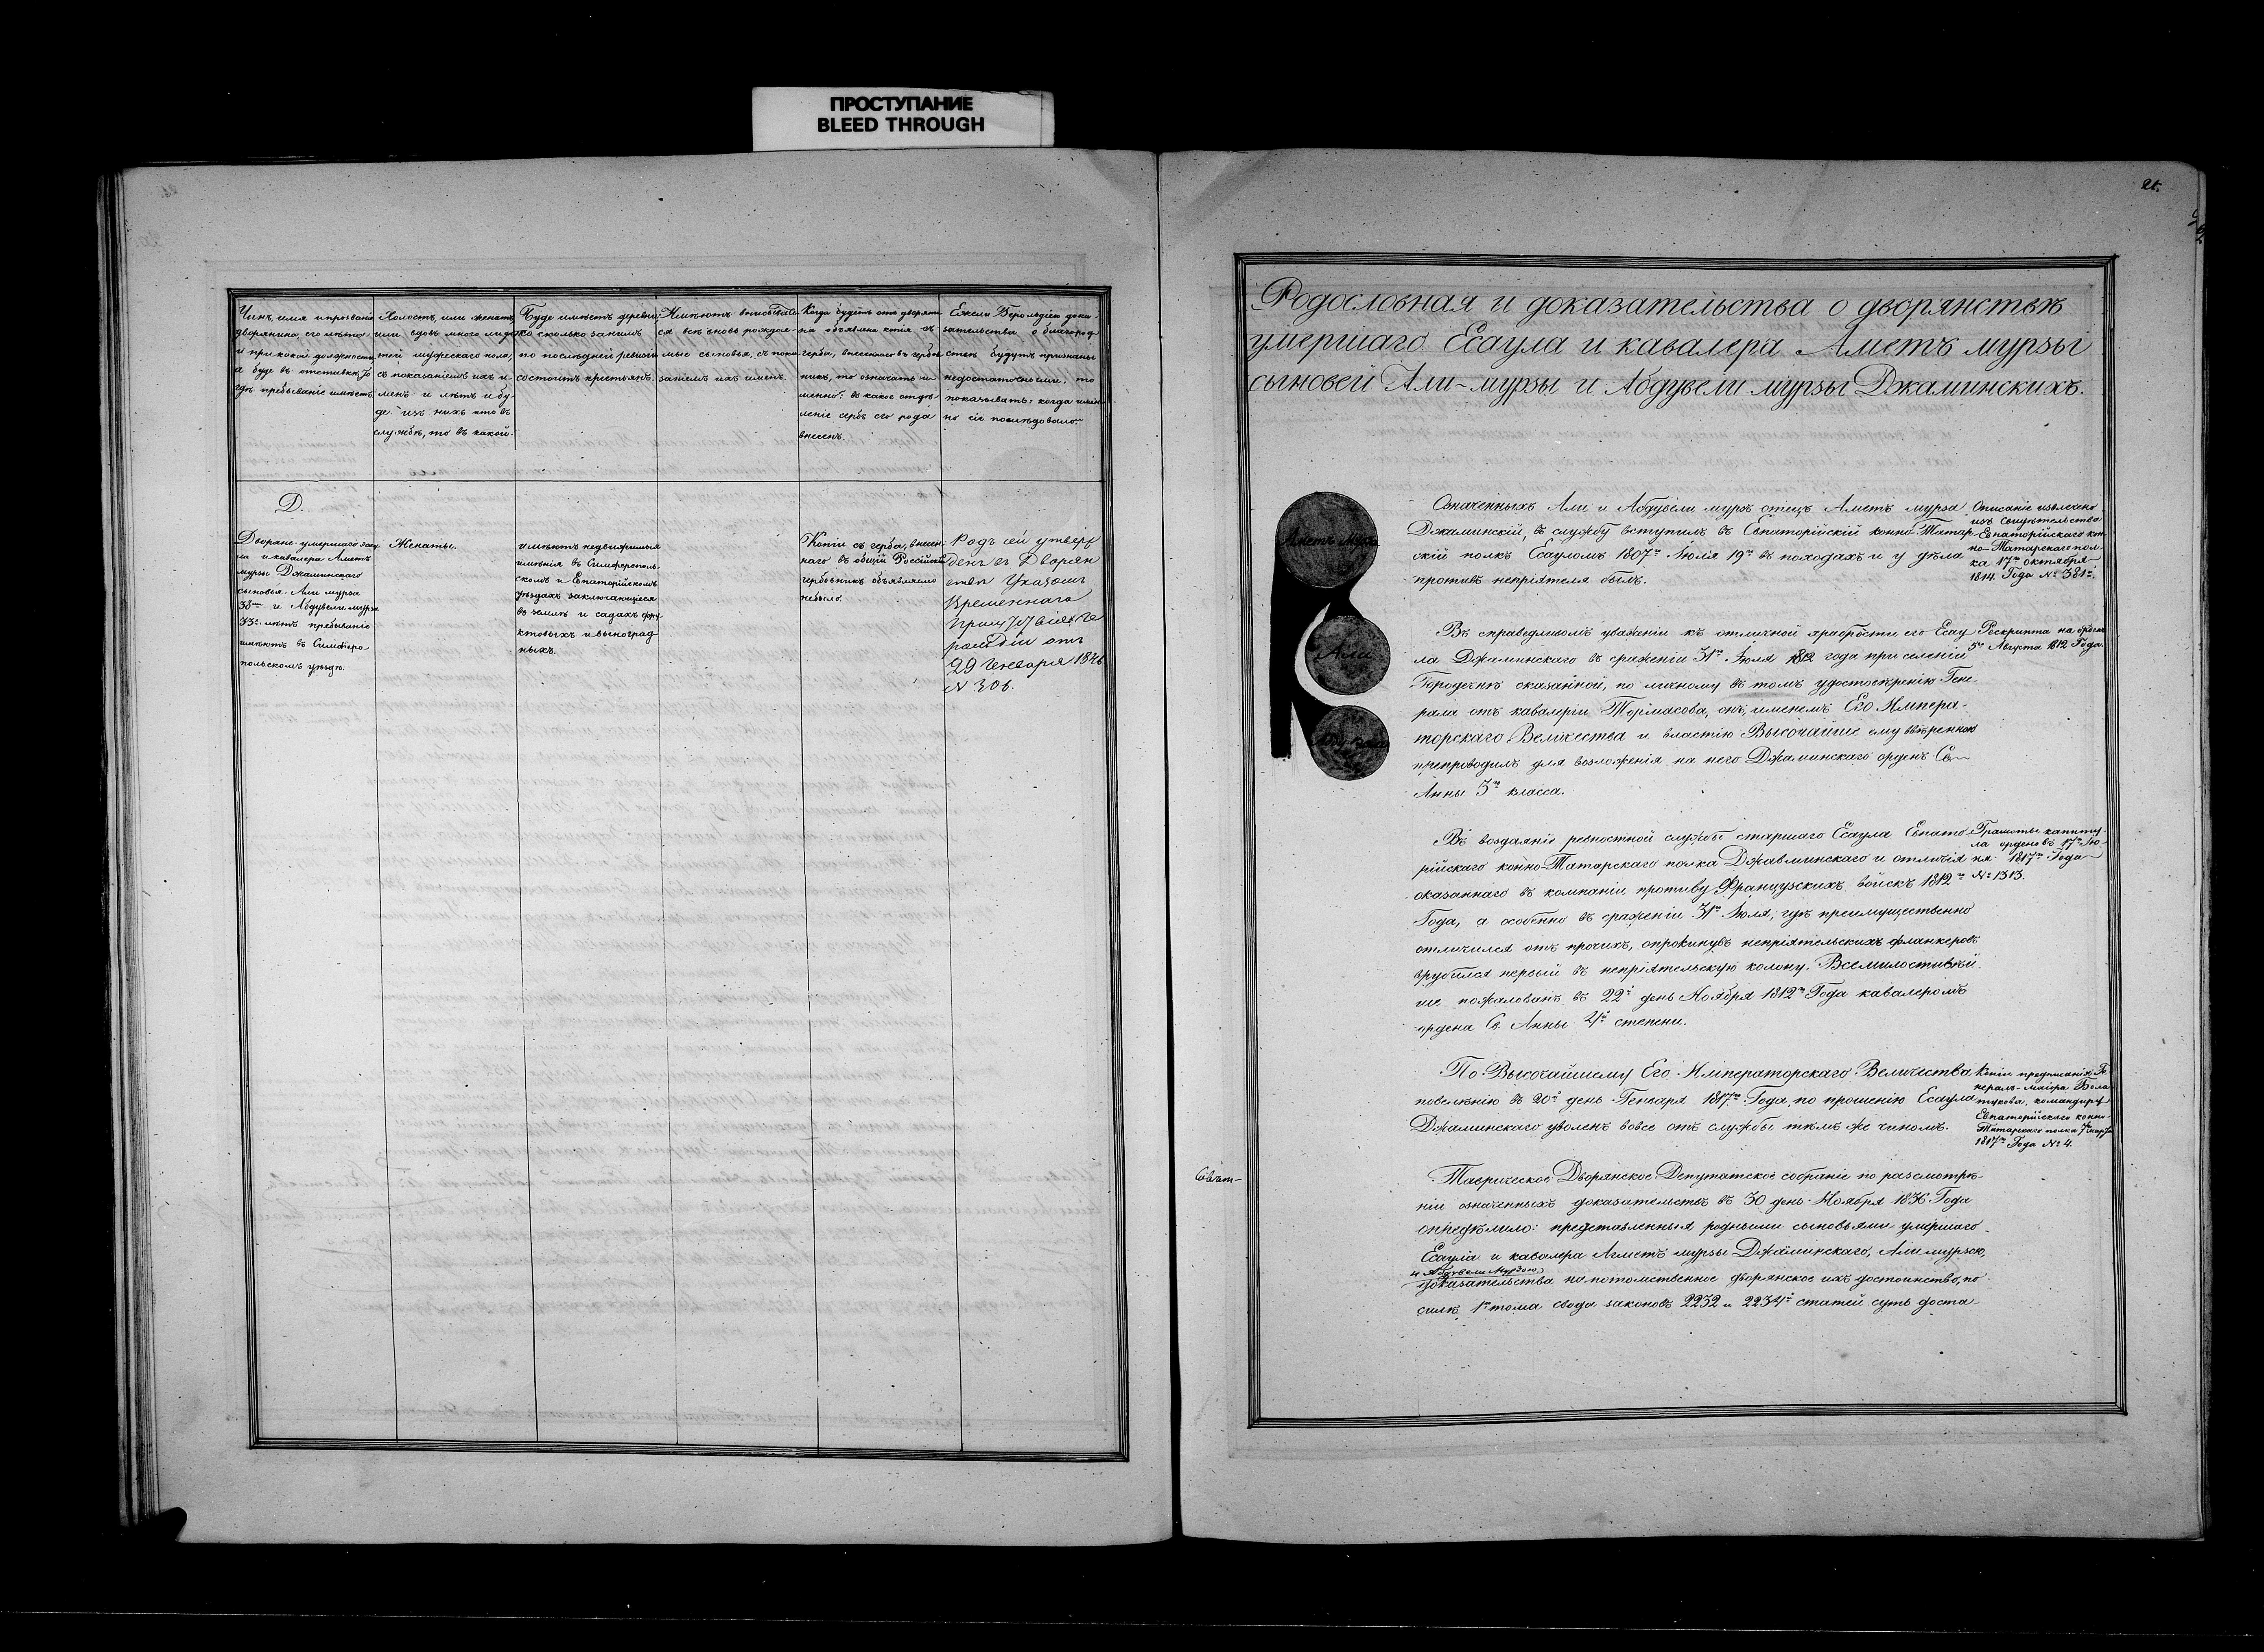 ПРОСТУПАНИЕ
BLEED THROUGH
Чинъ, имя и прозваніе
дворянина, его лѣта:
и при какой должности,
а буде въ отставкѣ, то
гдѣ пребываніе имѣетъ.
Холостъ, или женатъ,
или вдовъ, много ли дѣ-
тей мужескаго пола,
съ показаніемъ ихъ и-
менъ и лѣтъ и бу-
де изъ нихъ кто въ
службѣ, то въ какой.
Буде имѣетъ деревни,
то сколько за нимъ
по послѣдней ревизіи
состоитъ крестьянъ.
Имѣютъ вписывать-
ся всѣ вновь рождае-
мые сыновья, съ пока-
заніемъ ихъ именъ.
Когда будетъ отъ дворяни-
на объявлена копія съ
герба, внесеннаго въ гербов-
никъ, то означать и-
менно: въ какое отдѣ-
леніе гербъ его рода
внесенъ.
Ежели Герольдіею дока-
зательства о благород-
ствѣ будутъ признаны
недостаточными; то
показывать: когда имен-
но сіе послѣдовало.
Д.
Дворяне умершаго Эсау-
ла и кавалера Аметъ
мурзы Джаминскаго
сыновья: Али мурза
38 и Абдувели мурза
33 лѣтъ пребываніе
имѣютъ въ Симферо-
польскомъ уѣздѣ.
Женаты.
имѣютъ недвижимыя
имѣнія въ Симферополь-
скомъ и Евпаторійскомъ
уѣздахъ заключающіеся
въ землѣ и садахъ фру-
ктовыхъ и виноград-
ныхъ.
Копіи съ герба, внесен-
наго въ общій Россійскій
гербовникъ объявляемо
небыло.
Родъ сей утверж
денъ въ Дворян
ствѣ Указомъ
Временнаго
Присутствія Ге
рольдіи отъ
29 Генваря 1846
N 306.
21.
Родословная и доказательства о дворянствѣ
умершаго Есаула и кавалера Аметъ мурзы
сыновей Али-мурзы и Абдувели мурзы Джаминскихъ.
Аметъ мурза
Али
Означенныхъ Али и Абдувели мурзъ отецъ Аметъ мурза
Джаминскій, въ службу вступилъ въ Евпаторійскій конно-Татар-
скій полкъ Есауломъ 1807го Іюля 19го въ походахъ и у дѣла
противъ непріятеля былъ.
Описаніе извлечено
изъ Свидѣтельства
Евпаторійскаго кон-
но-Татарскаго пол-
ка 17го октября
1814 Года № 381.
Въ справедливомъ уваженіи къ отличной храбрости его Есау-
ла Джаминскаго въ сраженіи 31го Іюля 1812 года при селеніи
Городечнѣ сказанной, по личному въ томъ удостовѣренію Гене-
рала отъ кавалеріи Тормасова, онъ, именемъ Его Импера-
торскаго Величества и властію Высочайше ему ввѣренною
препроводилъ для возложенія на него Джаминскаго орденъ Св.
Анны 3го класса.
Рескрипта на орденъ
5го Августа 1812 Года.
Въ воздаяніе ревностной службы старшаго Есаула Евпато-
рійскаго конно-Татарскаго полка Джавминскаго и отличія
оказаннаго въ компаніи противу Французскихъ войскъ 1812го
Года, а особенно въ сраженіи 31го Іюля, гдѣ преимущественно
отличился отъ прочихъ, опрокинувъ непріятельскихъ фланкеровъ
врубился первый въ непріятельскую колону, Всемилостивѣй-
ше пожалованъ въ 22й день Ноября 1812го Года кавалеромъ
ордена Св. Анны 4й степени.
Грамоты капиту-
ла орденовъ 17го Ію-
ня 1817го Года
№ 1313.
По Высочайшему Его Императорскаго Величества
повелѣнію въ 20й день Генваря 1817го Года, по прошенію Есаула
Джаминскаго уволенъ вовсе отъ службы тѣмъ же чиномъ.
Копіи предписанія Ге-
нералъ-маіора Бала-
тукова, командиру
Евпаторійскаго конно-
Татарскаго полка 7го мар
1817го Года № 4.
Таврическое Дворянское Депутатское собраніе по разсмотрѣ-
ніи означенныхъ доказательствъ въ 30 день Ноября 1836 Года
опредѣлило: представленныя родными сыновьями умершаго
Есаула и кавалера Аметъ мурзы Джаминскаго, Али мурзою,
и Абдувели Мурзою
доказательства на потомственное дворянское ихъ достоинство, по
силѣ 1го тома свода законовъ 2232 и 2234й статей суть доста-